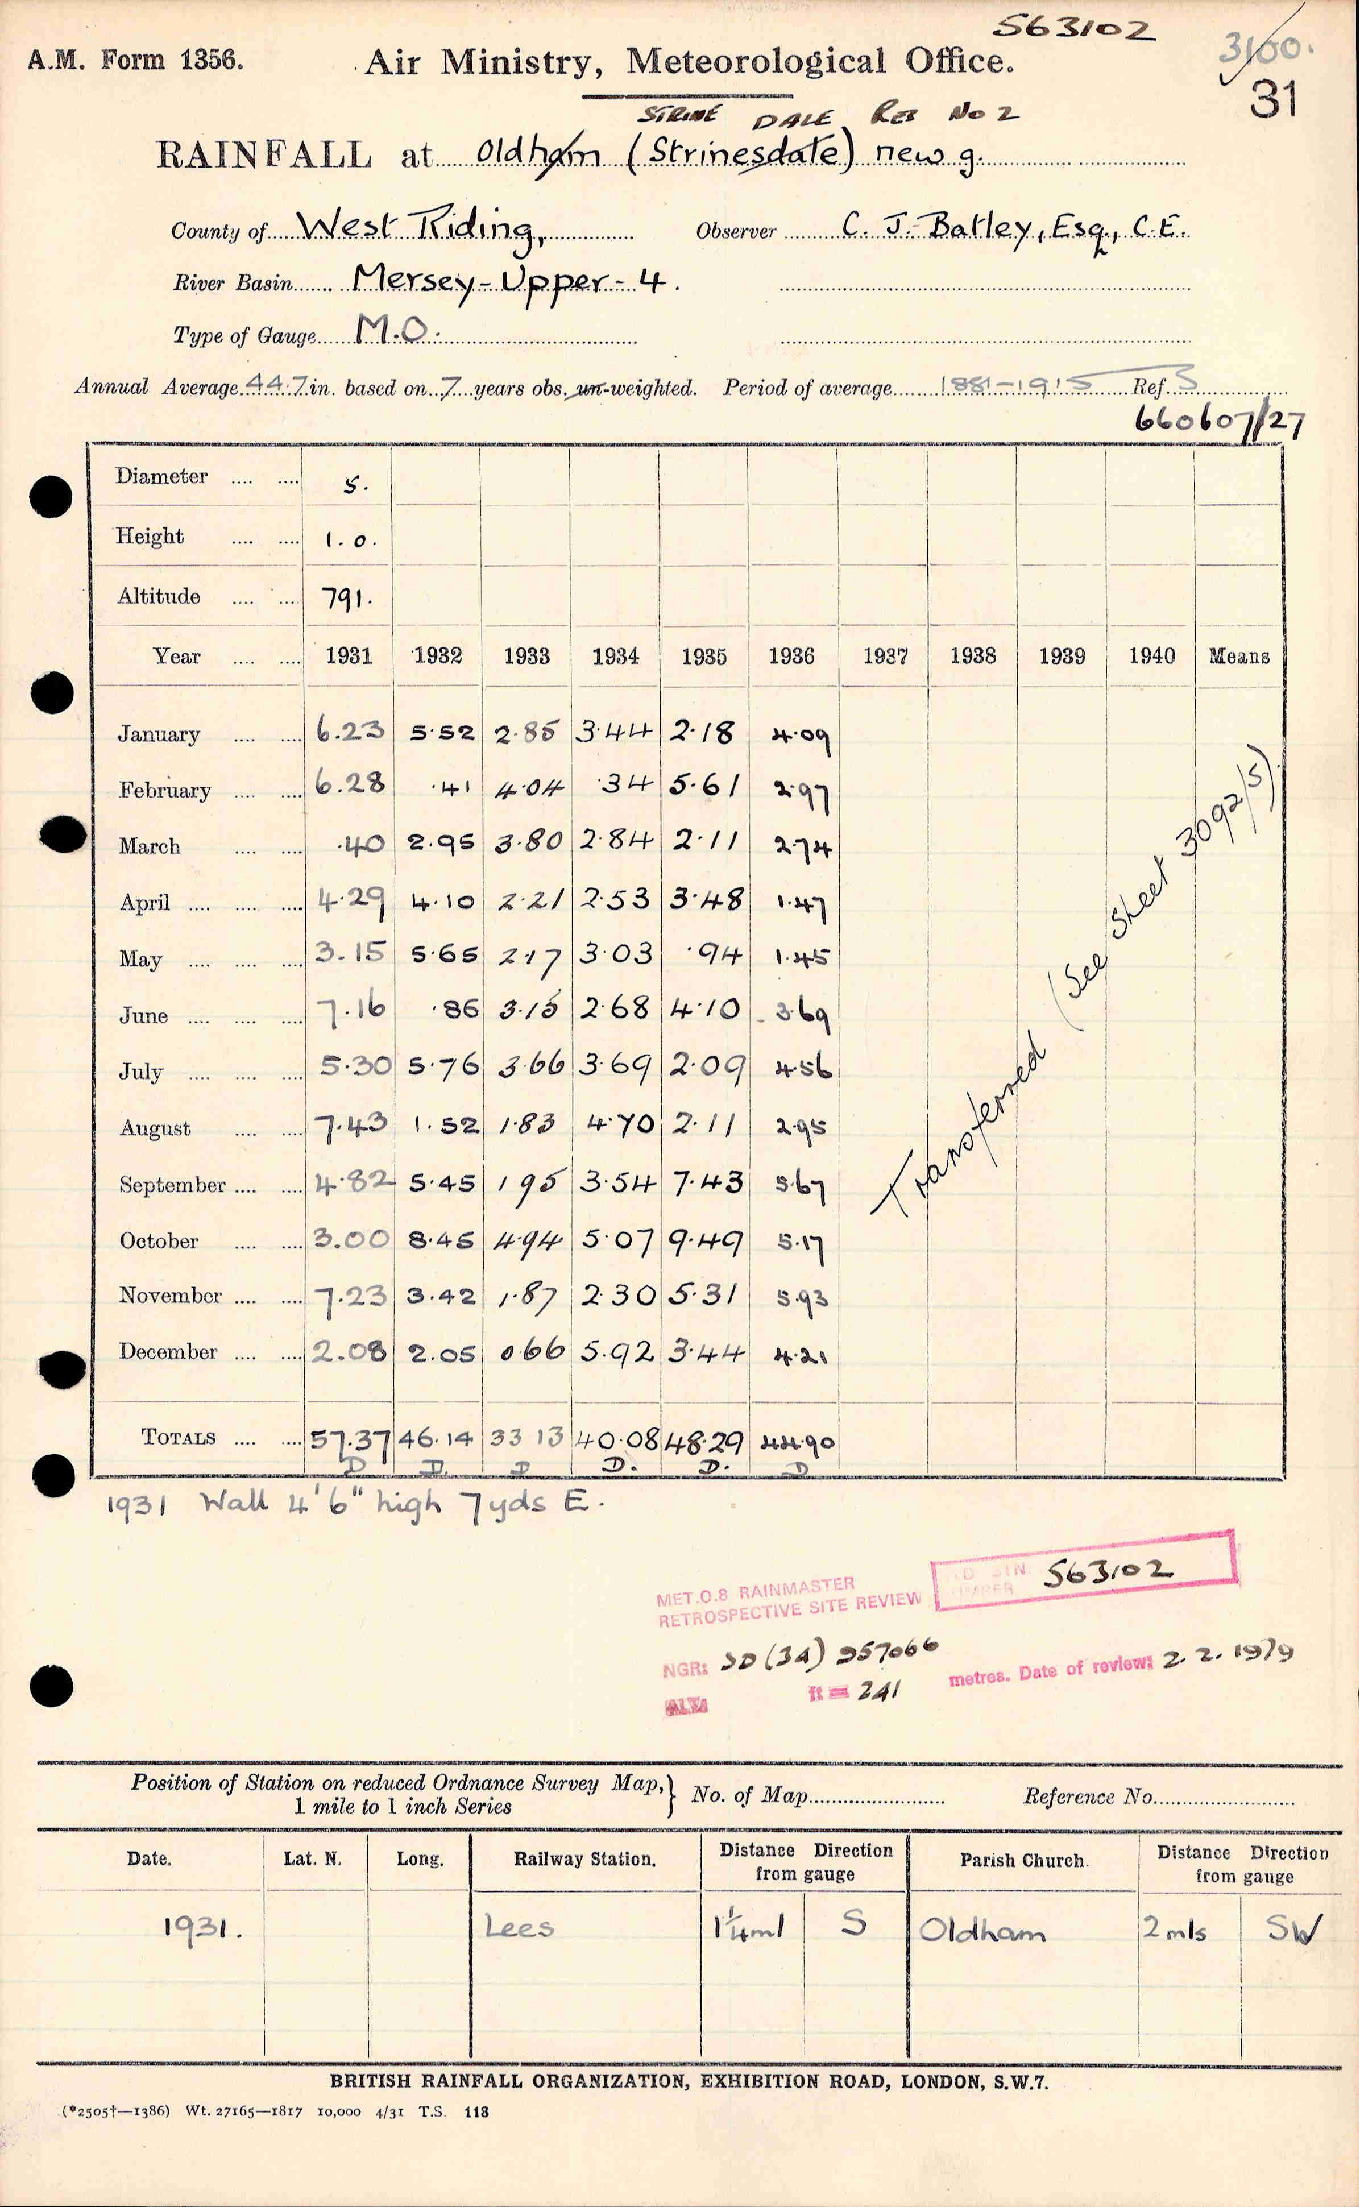 563102
A.M. Form 1356.
Air Ministry, Meteorological Office.
3100.
31
STRINE DALE RES No 2
RAINFALL at Oldham (Strinesdale) new g.
County of West Riding, Observer C. J. Batley, Esq., C.E.
River Basin Mersey - Upper - 4.
Type of Gauge M.O.
Annual Average 44.7 in. based on 7 years obs. un-weighted. Period of average 1881-1915 Ref. 3
660607/27
Diameter .... .... 5.
Height .... .... 1.0.
Altitude .... .... 791.
Year .... .... 1931 1932 1933 1934 1935 1936 1937 1938 1939 1940 Means
January .... .... 6.23 5.52 2.85 3.44 2.18 4.09
February .... .... 6.28 .41 4.04 .34 5.61 2.97
March .... .... .40 2.95 3.80 2.84 2.11 2.74
April .... .... .... 4.29 4.10 2.21 2.53 3.48 1.47
May .... .... .... 3.15 5.65 2.17 3.03 .94 1.45
June .... .... .... 7.16 .86 3.15 2.68 4.10 3.69
July .... .... .... 5.30 5.76 3.66 3.69 2.09 4.56
August .... .... 7.43 1.52 1.83 4.70 2.11 2.95
September .... .... 4.82 5.45 1 95 3.54 7.43 5.67
October .... .... 3.00 8.45 4.94 5.07 9.49 5.17
November .... .... 7.23 3.42 1.87 2.30 5.31 5.93
December .... .... 2.08 2.05 0 66 5.92 3.44 4.21
TOTALS .... .... 57.37 46.14 33 13 40.08 48.29 44.90
D D. D D. D. D
Transferred (See Sheet 3092/5)
1931 Wall 4'6" high 7 yds E.
MET.O.8 RAINMASTER
RETROSPECTIVE SITE REVIEW
STN. NUMBER 563102
NGR: SD (34) 957066
ALT: ft = 241 metres. Date of review: 2. 2. 1979
Position of Station on reduced Ordnance Survey Map,} No. of Map Reference No.
1 mile to 1 inch Series
Date. Lat. N. Long. Railway Station. Distance Direction from gauge Parish Church. Distance Direction from gauge
1931. Lees 1¼ ml S Oldham 2 mls SW
BRITISH RAINFALL ORGANIZATION, EXHIBITION ROAD, LONDON, S.W.7.
(*2505†—1386) Wt. 27165—1817 10,000 4/31 T.S. 118